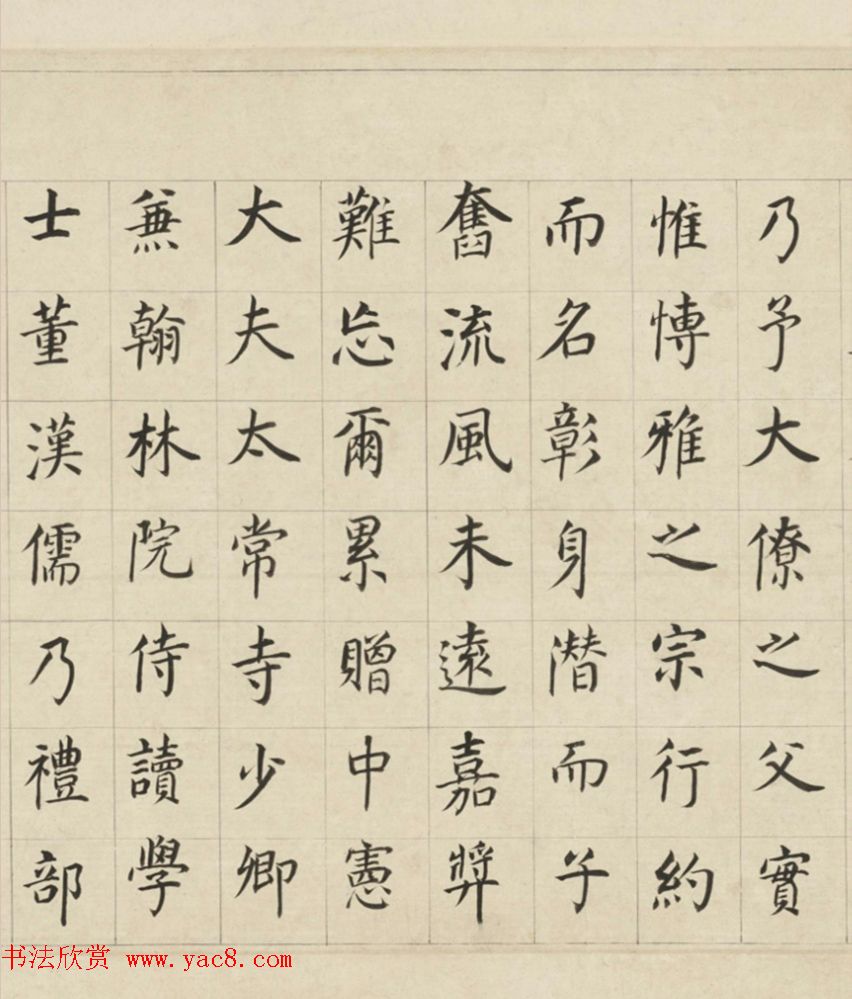 乃予大僚之父實
惟博雅之宗行約
而名彰身潛而子
奮流風未遠嘉獎
難忘爾累贈中憲
大夫太常寺少卿
兼翰林院侍讀學
士董漢儒乃禮部
书法欣赏 www.yac8.com